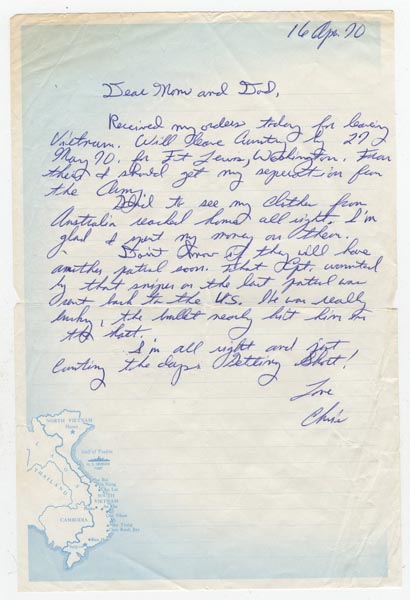 16 Apr. 70
Dear Mom and Dad,
Received my orders today for leaving
Vietnam. Will leave Country by 27
May 70. for Ft Lewis, Washington. From
there I should get my separation from
the Army.
to see my clothes from
Australia reached home all right. I'm
glad I spent my money on them.
Don't know if they will have
another patrol soon. That Sgt. wounded
by that sniper on the last patrol was
sent back to the U.S. He was really
lucky, the bullet nearly hit him in
the
I'm all right and just
counting the days. Getting Short!
Love
Chris
NORTH VIETNAM
Hanoi
Gulf of Tonkin
LAOS
THAILAND
SOUTH
VIETNAM
CAMBODIA
Nha Trang
Cam Ranh Bay